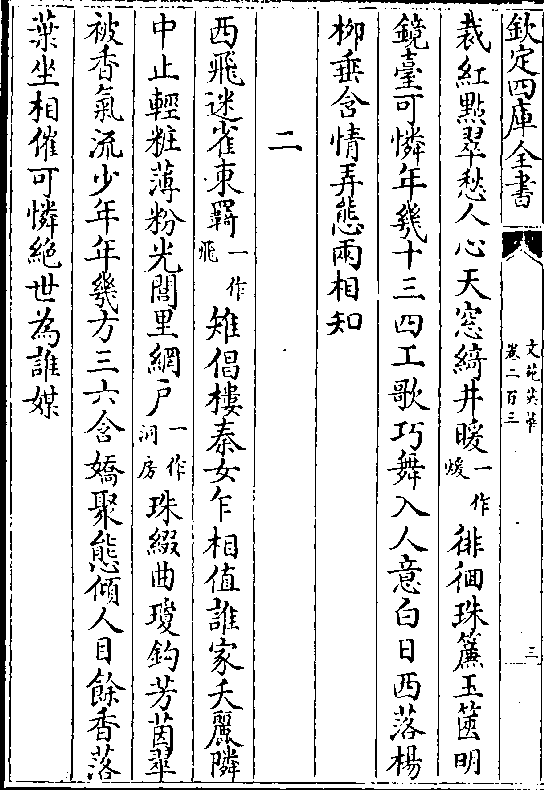 欽定四庫全書
文苑英華
卷二百三
三
裁紅點翠愁人心天窓綺井暖一作煖徘徊珠簾玉篋明
鏡臺可憐年幾十三四工歌巧舞入人意白日西落楊
柳垂含情弄態兩相知
二
西飛迷雀東羇一作飛雉倡樓秦女乍相值誰家夭麗隣
中止輕粧薄粉光閭里網户一作洞房珠綴曲瓊鈎芳茵翠
被香氣流少年年幾方三六含嬌聚態傾人目餘香落
蘂坐相催可憐絶世為誰媒